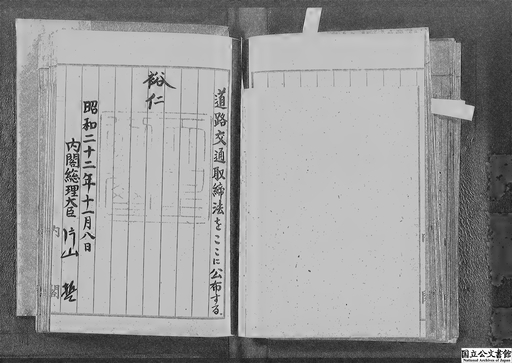 道路交通取締法をここに公布する。
裕仁
昭和二十二年十一月八日
内閣総理大臣 片山 哲
内閣
国立公文書館
National Archives of Japan